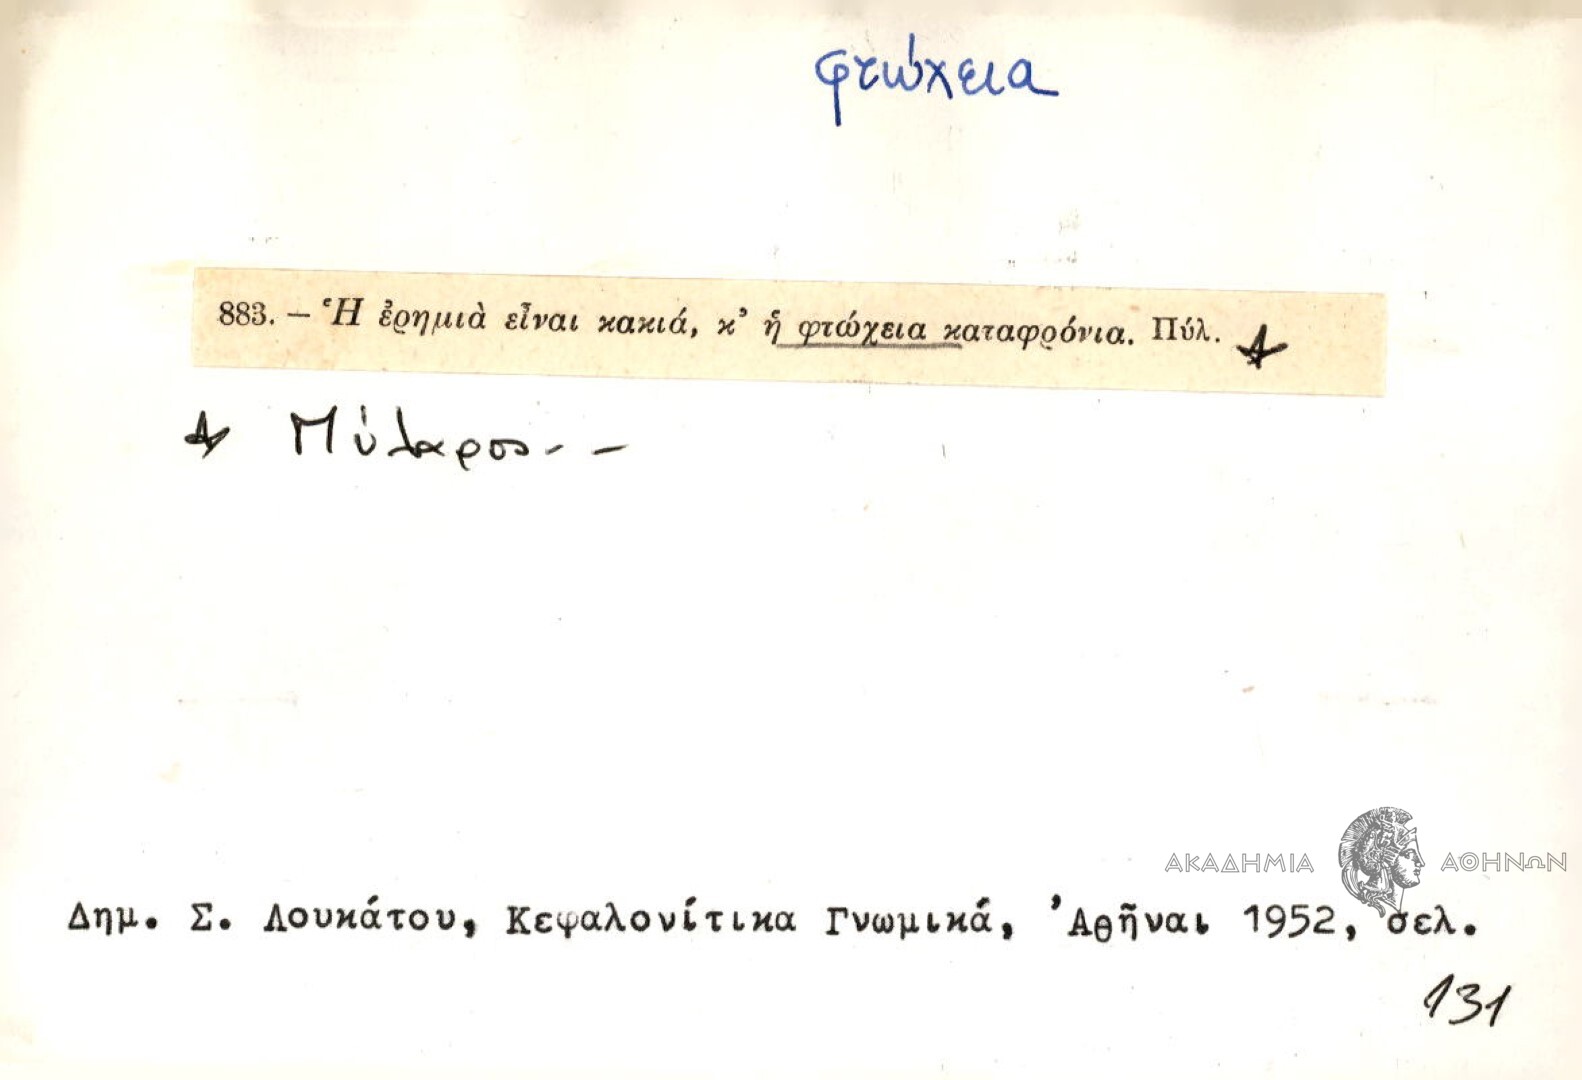 φτώχεια
883. — Ἡ ἐρημιὰ εἶναι κακιά, κ' ἡ φτώχεια καταφρόνια. Πύλ.
Πύλαρος. —
ΑΚΑΔΗΜΙΑ ΑΘΗΝΩΝ
Δημ. Σ. Λουκάτου, Κεφαλονίτικα Γνωμικά, Ἀθῆναι 1952, σελ.
131